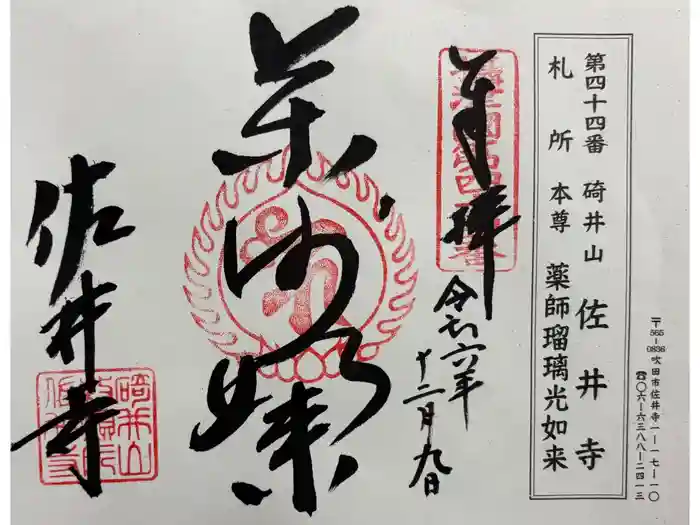 〒565-0836 吹田市佐井寺一ー一七ー一〇
☎〇六ー六三八八ー二四一三
第四十四番 碕井山 佐井寺
札所本尊 薬師瑠璃光如来
奉拝
令和六年
十二月九日
薬師如来
佐井寺